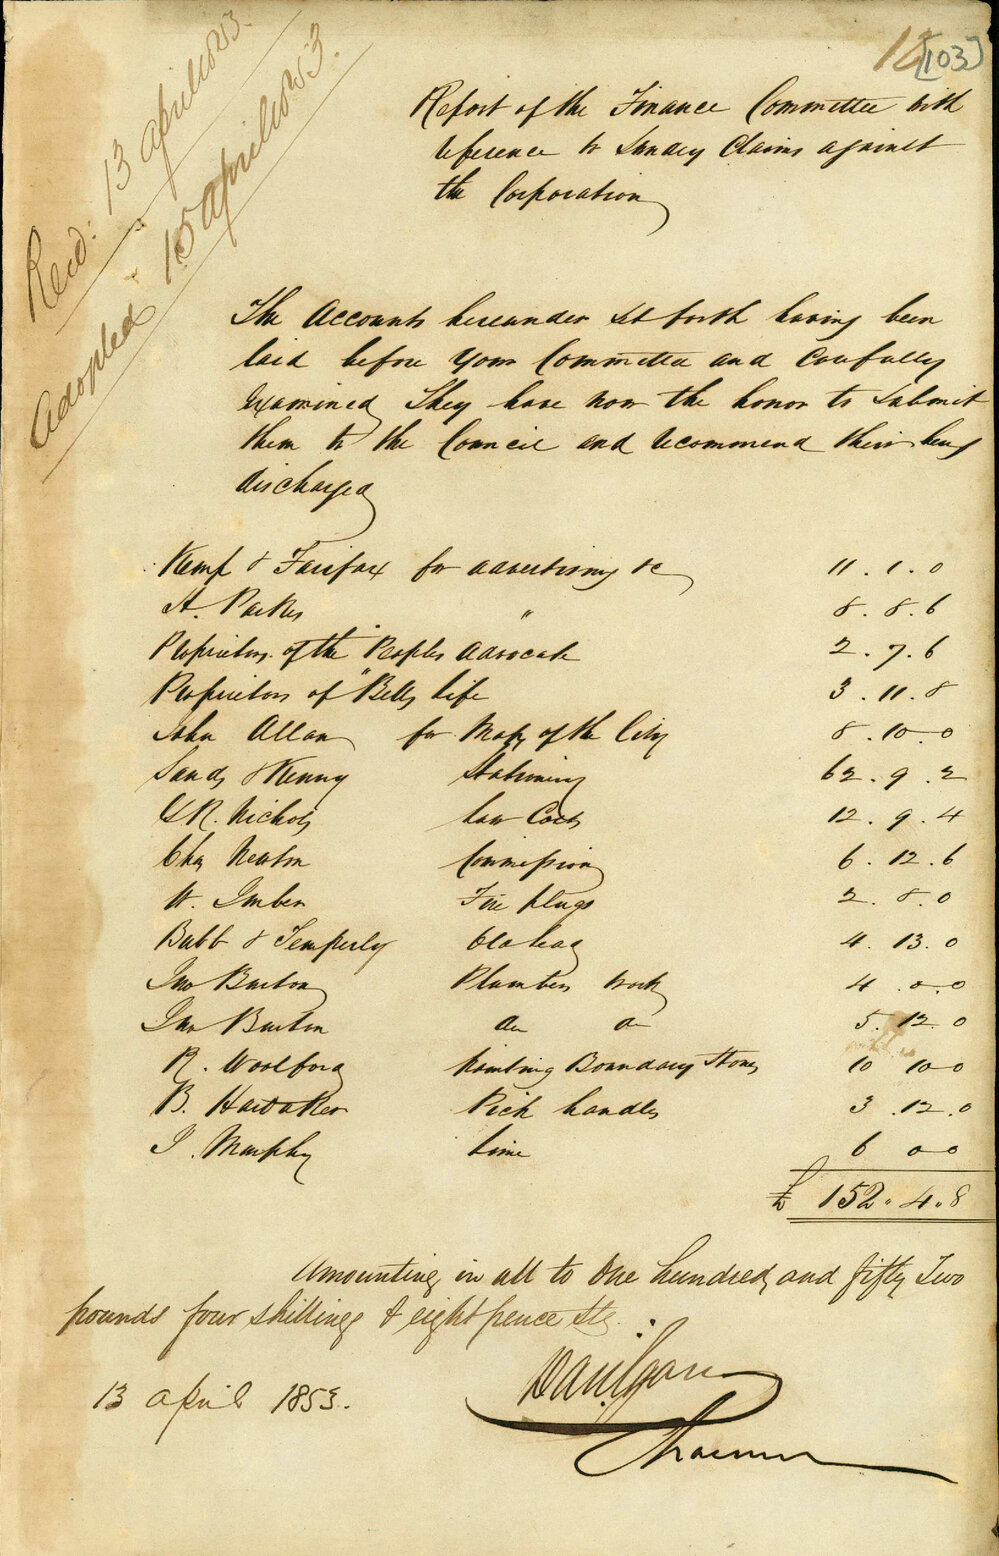 12 [103]
Recd: 13 april 1853.
Adopted 15 april 1853.
Report of the Finance Committee with
reference to Sundry Claims against
the Corporation
The Accounts hereunder set forth having been
laid before your Committee and Carefully
Examined They have now the honor to submit
them to the Council and recommend their being
discharged
Kemp & Fairfax for advertising &c 11 . 1 . 0
H. Parkes " 8 . 8 . 6
Proprietors of the "Peoples Advocate 2 . 7 . 6
Proprietors of "Bells Life 3 . 11 . 8
John Allan for Map of the City 8 . 10 . 0
Sands & Kenny Stationery 62 . 9 . 2
G R. Nichols Law Costs 12 . 9 . 4
Chas Newton Commission 6 . 12 . 6
W. Imber Fire plugs 2 . 8 . 0
Bubb & Temperly 4 . 13 . 0
Jno Burton Plumbers work 4 . 0 . 0
Jno Burton do do 5 . 12 . 0
R. Woolford Painting Boundary Stones 10 10 0
B. Hardaker Pick handles 3 . 12 . 0
J. Murphy Lime 6 0 0
£ 152 . 4 . 8
Amounting in all to One hundred and fifty Two
pounds four shillings & eight pence Stg.
13 april 1853.
Dan Egan
Chairman